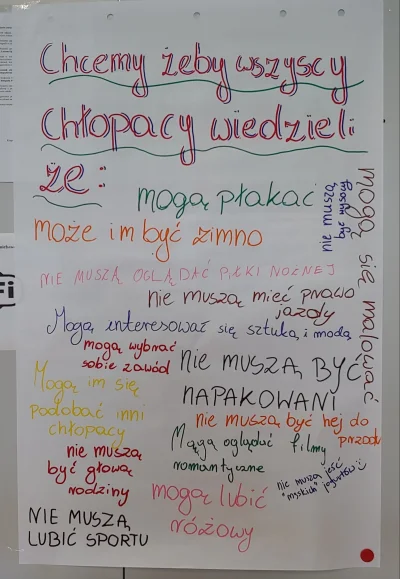 Chcemy żeby wszyscy
Chłopacy wiedzieli
że:
mogą płakać
nie muszą
być wysocy
mogą się malować
może im być zimno
NIE MUSZĄ OGLĄDAĆ PIŁKI NOŻNEJ
nie muszą mieć prawo
jazdy
Mogą interesować się sztuką i modą
mogą wybrać
sobie zawód
NIE MUSZĄ BYĆ
NAPAKOWANI
Mogą im się
podobać inni
chłopacy
nie muszą być hej do
przodu
Mogą oglądać filmy
romantyczne
nie muszą
być głową
rodziny
nie muszą jeść
"męskich" jogurtów :)
mogą lubić
różowy
NIE MUSZĄ
LUBIĆ SPORTU
Fi